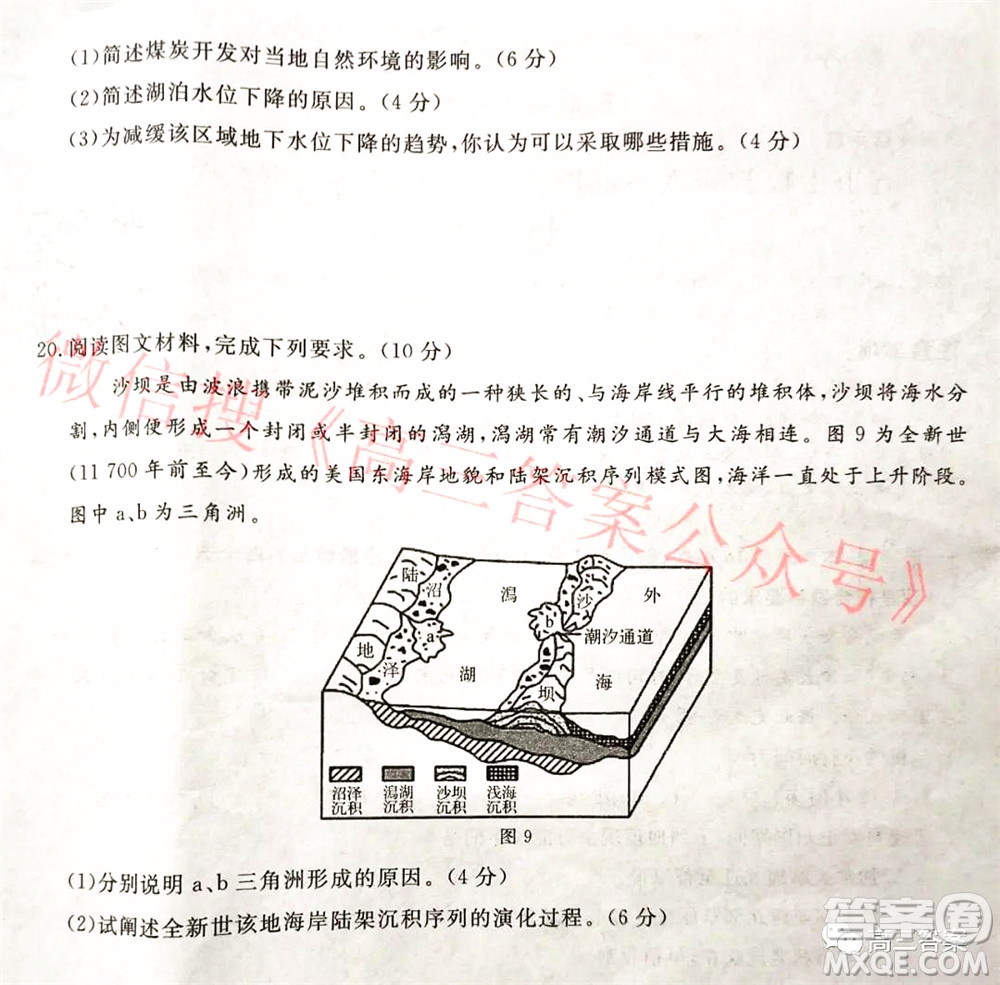 (1)简述煤炭开发对当地自然环境的影响。(6分)
(2)简述湖泊水位下降的原因。(4分)
(3)为减缓该区域地下水位下降的趋势,你认为可以采取哪些措施。(4分)
20.阅读图文材料,完成下列要求。(10分)
沙坝是由波浪携带泥沙堆积而成的一种狭长的、与海岸线平行的堆积体,沙坝将海水分
割,内侧便形成一个封闭或半封闭的潟湖,潟湖常有潮汐通道与大海相连。图9为全新世
(11 700年前至今)形成的美国东海岸地貌和陆架沉积序列模式图,海洋一直处于上升阶段。
图中a、b为三角洲。
微信搜《高三答案公众号》
陆 沼 潟 沙 外
a b
潮汐通道
地 泽 湖 坝 海
沼泽沉积 潟湖沉积 沙坝沉积 浅海沉积
图9
(1)分别说明a、b三角洲形成的原因。(4分)
(2)试阐述全新世该地海岸陆架沉积序列的演化过程。(6分)
答案圈
高三答案
MXQE.COM